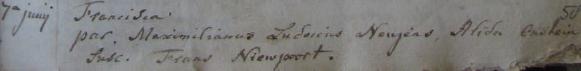 7a junij Francisca 50
par. Maximilianus Ludovicus Neujens, Alida
Susc. Frans Niewpoort.